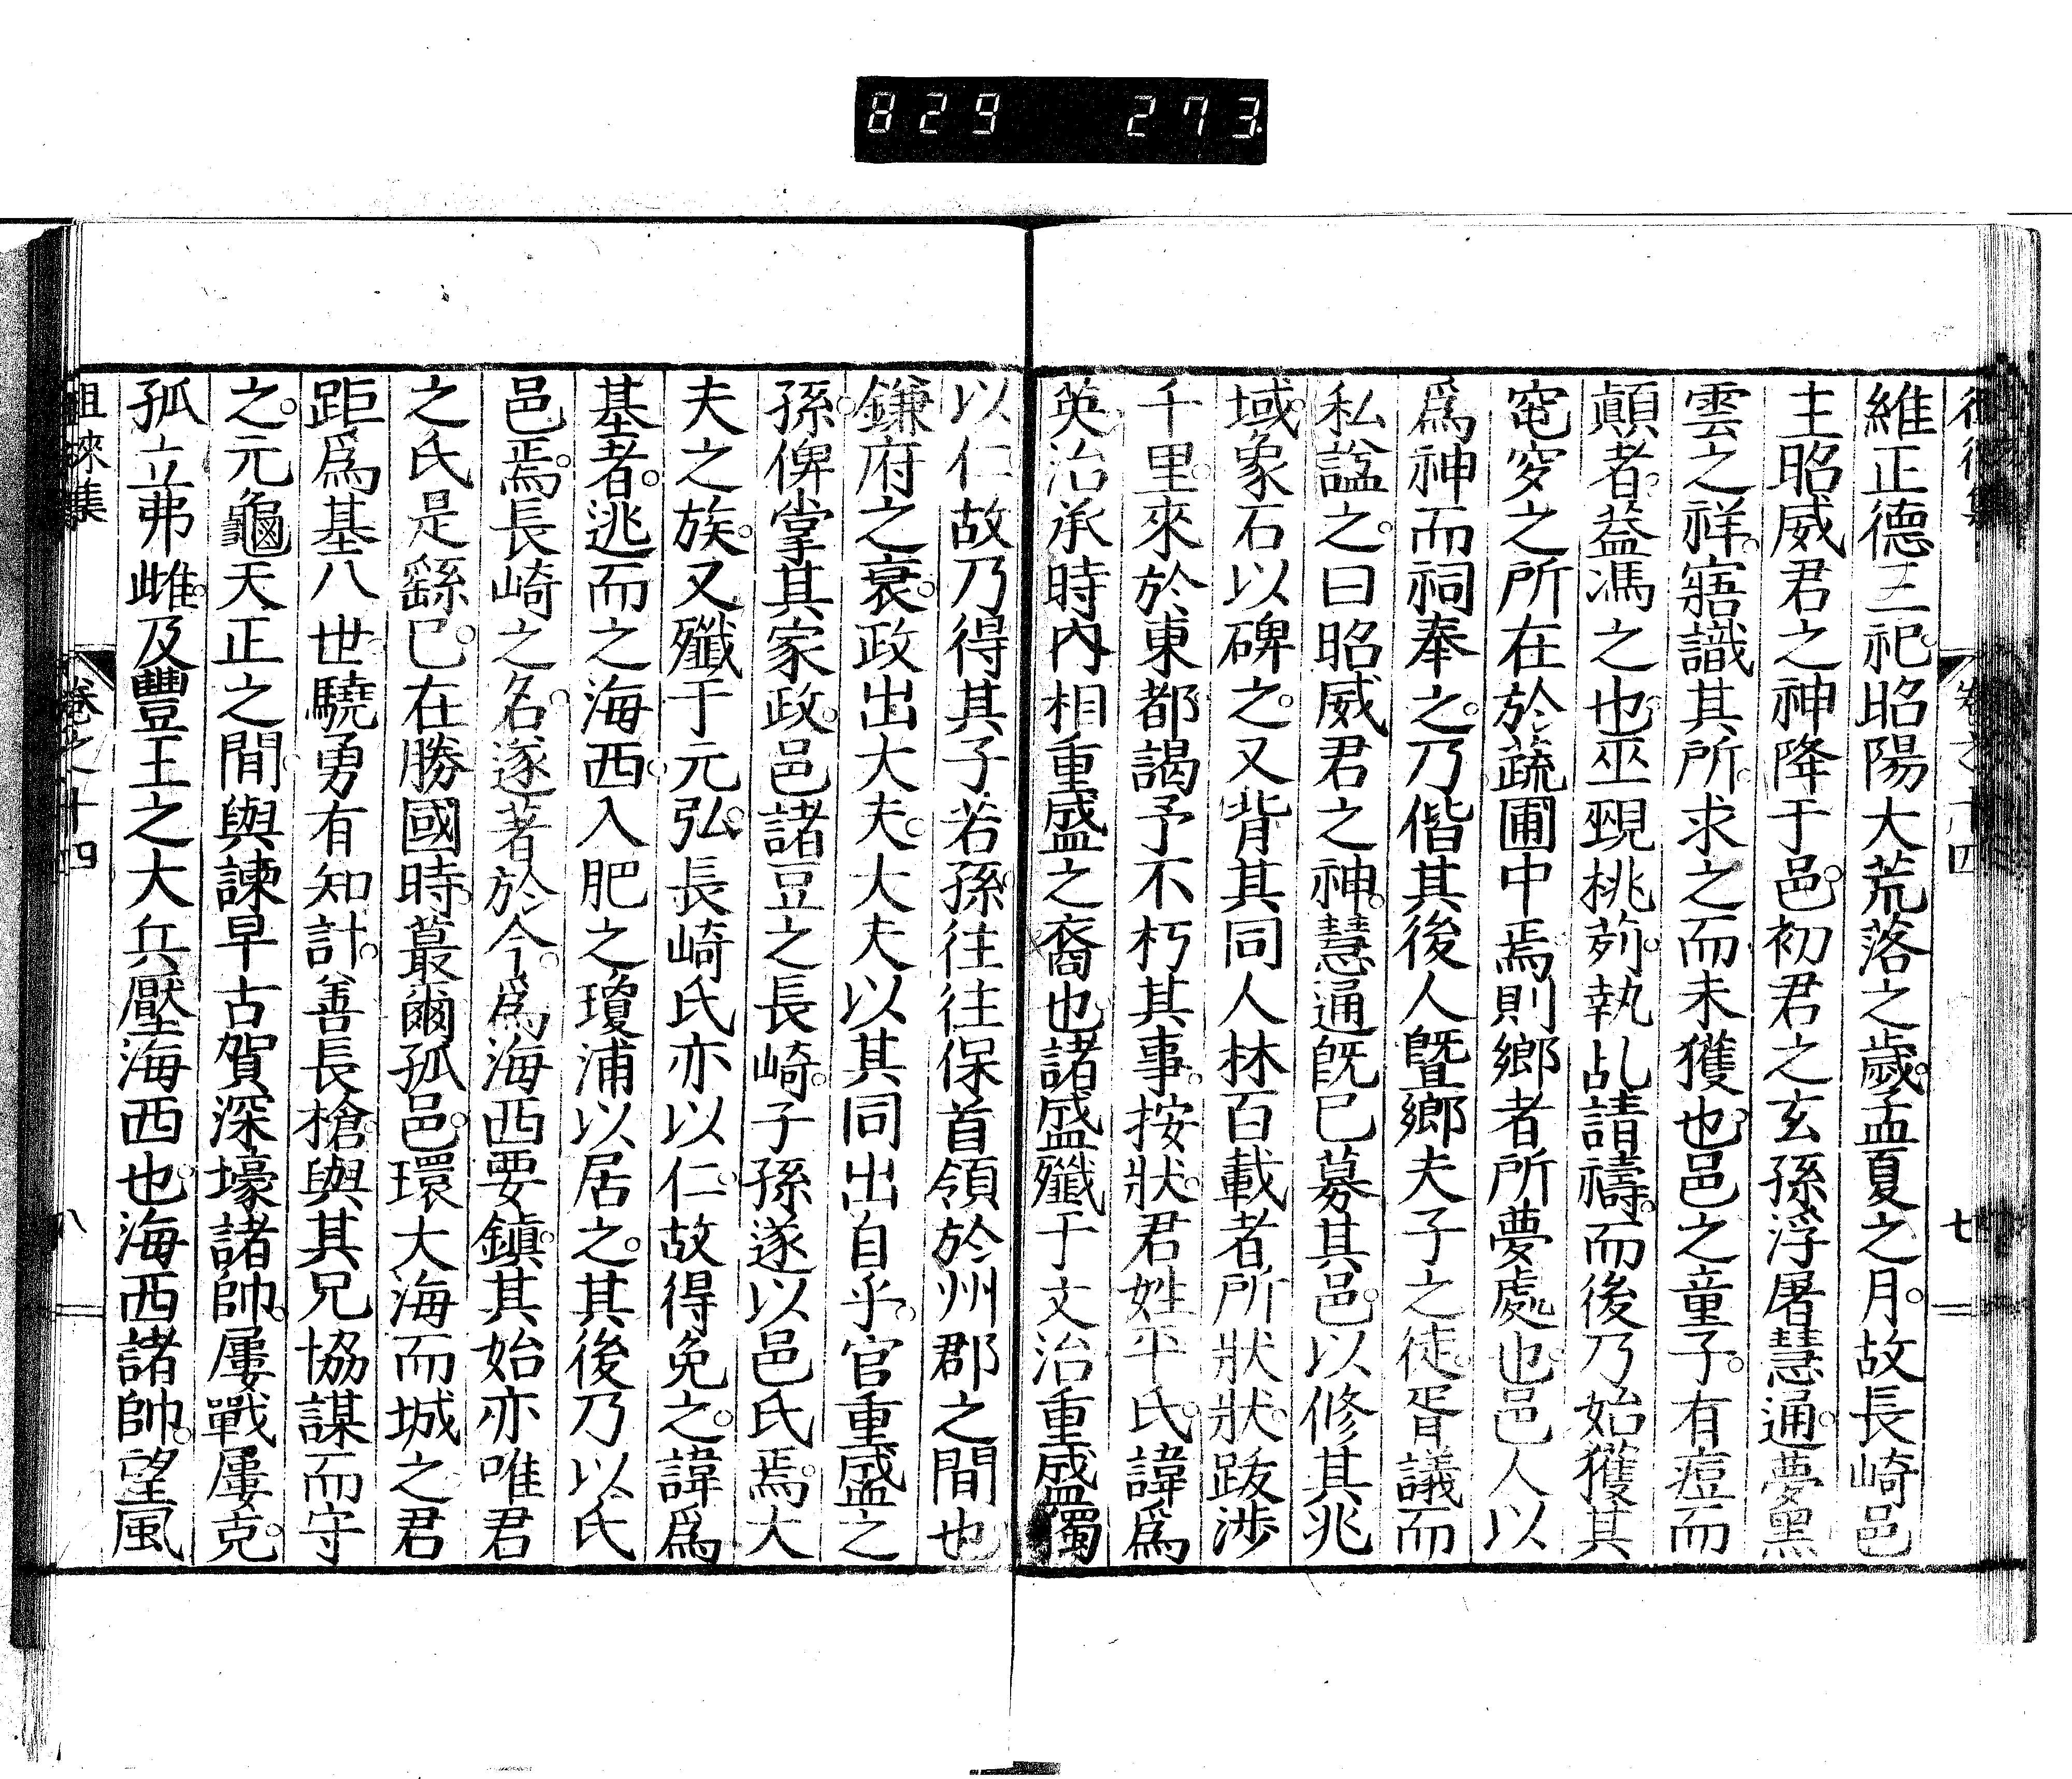 829 273.
徂徠集 卷之十四 七
維正德三祀。昭陽大荒落之歲。孟夏之月。故長崎邑
主昭威君之神降于邑。初君之玄孫浮屠慧通。夢黑
雲之祥。寤識其所。求之而未獲也。邑之童子。有痘而
顛者。益馮之也。巫覡桃茢。執乩請禱。而後乃始獲其
窀穸之所在於蔬圃中焉。則鄉者所夢處也。邑人以
爲神而祠奉之。乃偕其後人曁鄉夫子之徒。胥議而
私諡之。曰昭威君之神。慧通旣已募其邑。以修其兆
域。象石以碑之。又背其同人林百載者所狀狀。跋涉
千里。來於東都。謁予不朽其事。按狀。君姓平。氏諱爲
英。治承時內相重盛之裔也。諸盛殲于文治。重盛獨
以仁故。乃得其子若孫。往往保首領於州郡之間也。
鎌府之衰。政出大夫。大夫以其同出自乎。官重盛之
孫。俾掌其家政。邑諸豆之長崎。子孫遂以邑氏焉。大
夫之族。又殲于元弘。長崎氏亦以仁。故得免之。諱爲
基者。逃而之海西。入肥之瓊浦以居之。其後乃以氏
邑焉。長崎之名。遂著於今。爲海西要鎮。其始亦唯君
之氏是繇已。在勝國時。蕞爾孤邑。環大海而城之。君
距爲基八世。驍勇有知計。善長槍。與其兄協謀而守
之。元龜天正之間。與諫早古賀深壕諸帥。屢戰屢克。
孤立弗雌。及豐王之大兵壓海西也。海西諸帥。望風
徂徠集 卷之十四 八